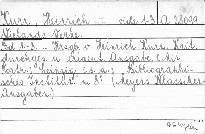 Kurz, Heinrich vide 1-3 A 28099
Wielands Werke.
Bd. 1-3. Hrsgb. v. Heinrich Kurz. Krit.
durchges. u. Ausgabe.
Leipzig: Bibliographi-
sches Institut. 8° (Meyers Klassiker-
Ausgaben)